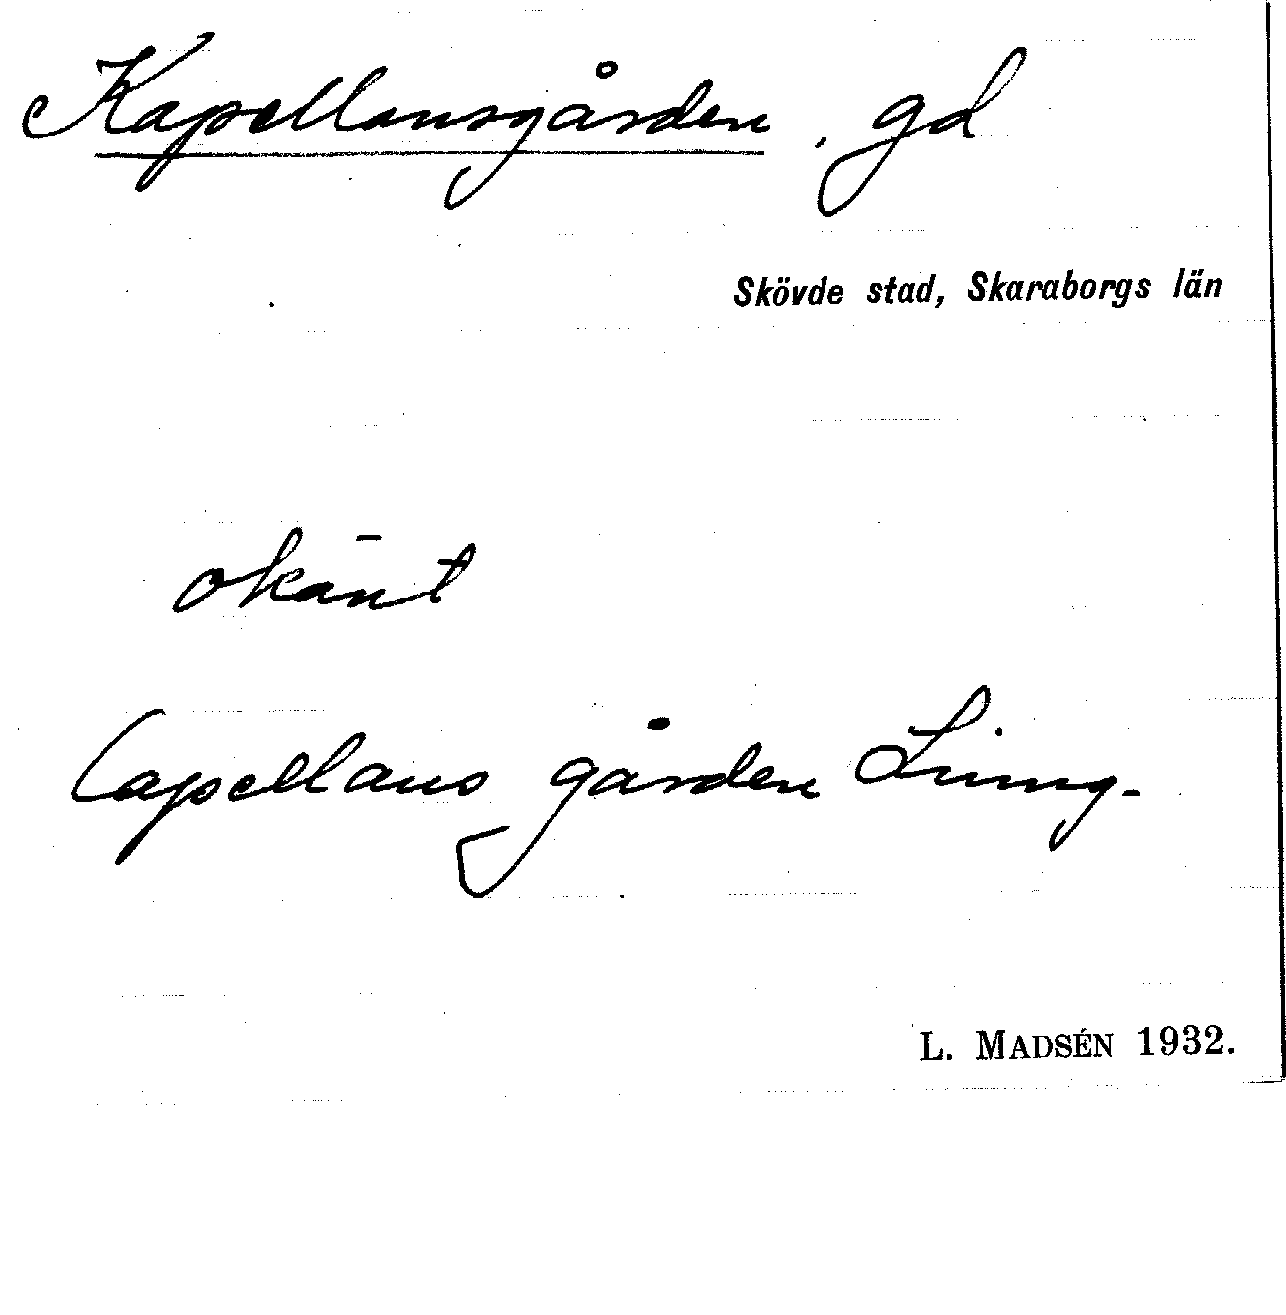 Kapellansgården, gd
Skövde stad, Skaraborgs län
okänt
Capellans gården Ljung.
L. MADSÉN 1932.